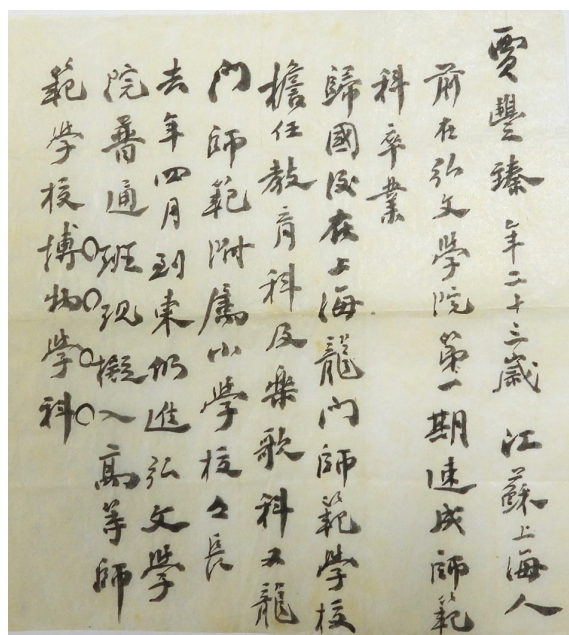 賈豐臻 年二十三歲 江蘇上海人
前在弘文學院第一期速成師範
科卒業
歸國後在上海龍門師範學校
擔任教育科及樂歌科又龍
門師範附屬小學校々長
去年四月到東仍進弘文學
院普通班現擬入高等師
範學校博物學科